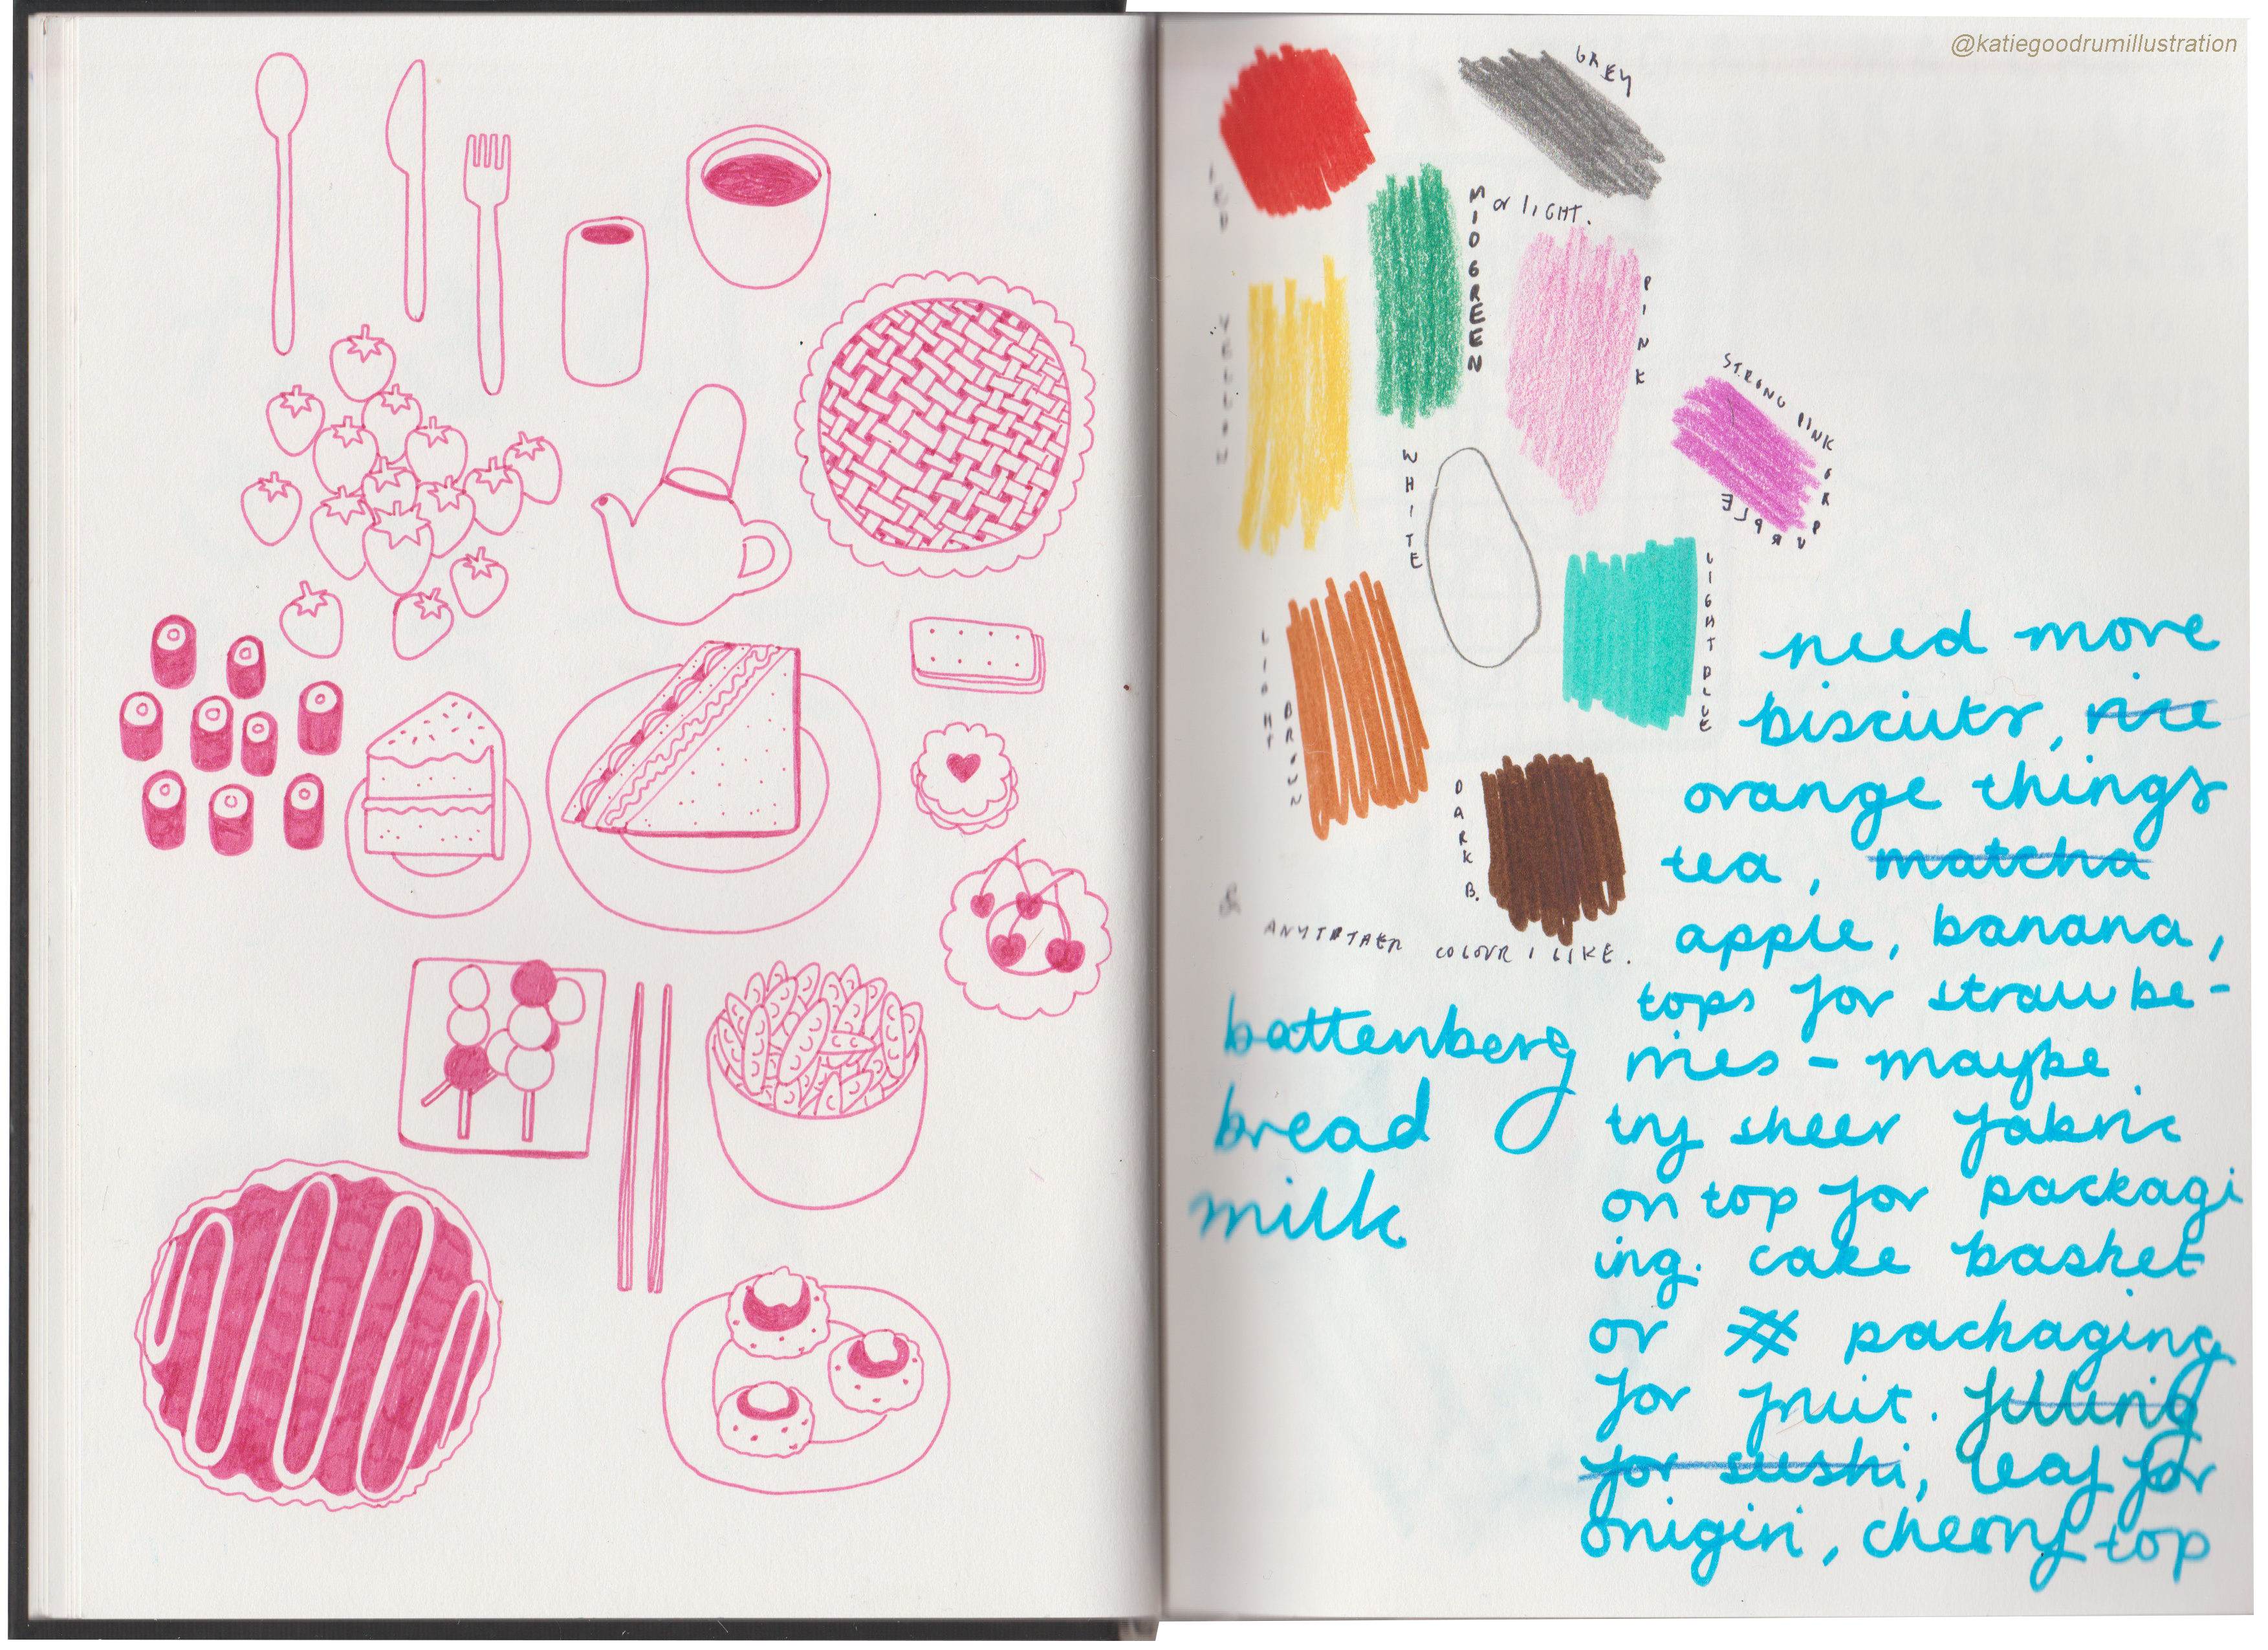 @katiegoodrumillustration
RED
GREY
MID GREEN
or LIGHT.
PINK
YELLOW
STRONG PINK OR PURPLE
WHITE
LIGHT BLUE
LIGHT BROWN
DARK B.
& ANY OTHER COLOUR I LIKE.
need more
biscuits, rice
orange things
tea, matcha
apple, banana,
tops for strawbe-
rries - maybe
try sheer fabric
on top for packagi
ing. cake basket
or # packaging
for fruit. filling
for sushi, leaf for
onigiri, cherry top
battenberg
bread
milk